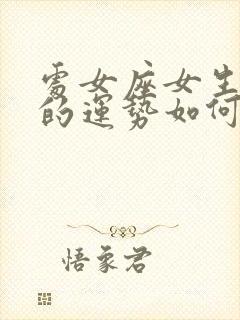 處女座女生
的運勢如何
悟象君